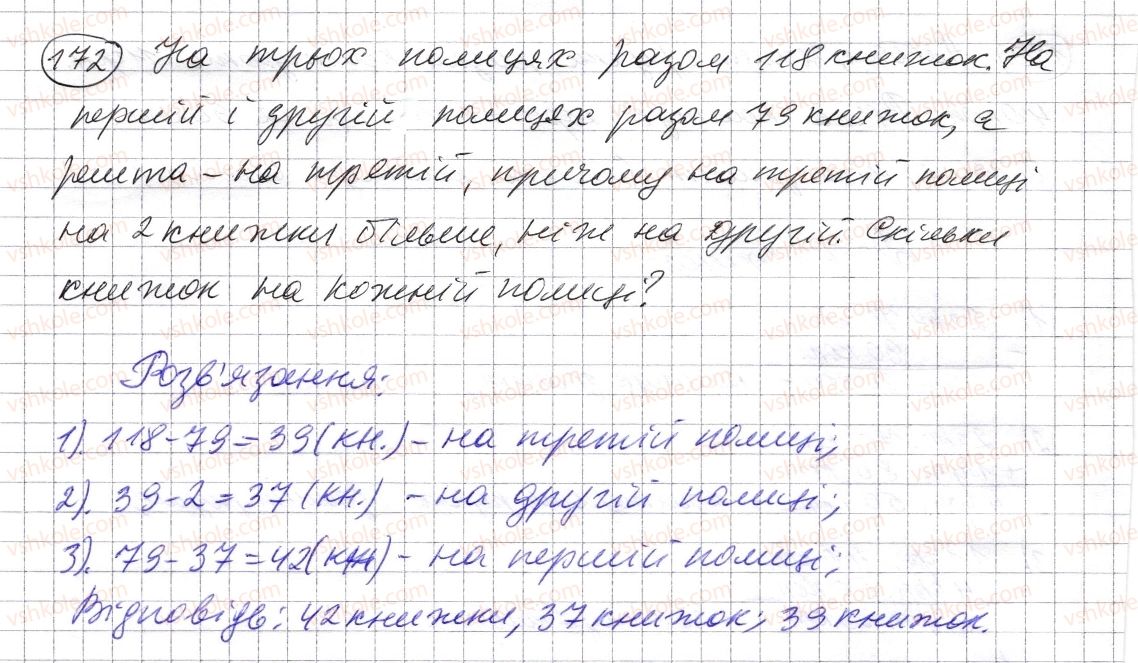 172 На трьох полицях разом 118 книжок. На
першій і другій полицях разом 79 книжок, а
решта - на третій, причому на третій полиці
на 2 книжки більше, ніж на другій. Скільки
книжок на кожній полиці?
Розв'язання:
1). 118-79=39(кн.) - на третій полиці;
2). 39-2=37 (кн.) - на другій полиці;
3). 79-37=42(кн) - на першій полиці;
Відповідь: 42 книжки, 37 книжок; 39 книжок.